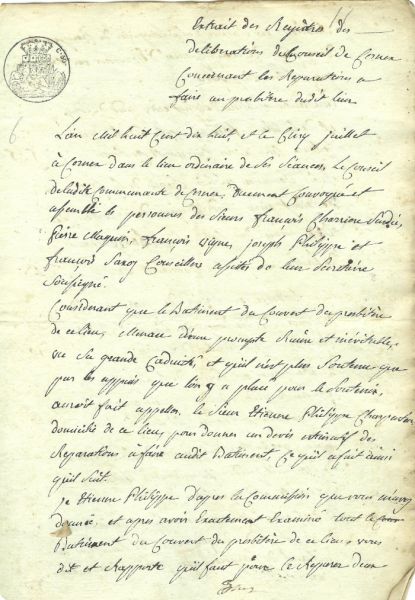 Extrait des Registres des
deliberations du Conseil de Cornex
Concernant les Reparations a
faire au presbitere dudit lieu
L'an Mil huit Cent dix huit, et le Cinq juillet
à Cornex dans le lieu ordinaire de ses séances, Le Conseil
de ladite Communauté de Cornex, duement Convoqué et
assemblé es personnes des Sieurs françois Charriere Sindic,
Pierre Magnin, françois vigne, joseph Philippe et
françois Saxoz Conseillers assistés de leur Secretaire
Soussigné.
Considerant que le Batiment du Couvert du presbitère
de ce lieu, Menace d'une prompte Ruine et inévitable,
vu sa grande Caducité, et qu'il n'est plus Soutenu que
par les appuis que lon y a placé pour le Soutenir,
auroit fait appeller, le Sieur Etienne Philippe Charpentier
domicilié de ce lieu, pour donner un devis estimatif des
Reparations a faire audit Batiment, Ce qu'il a fait ainsi
qu'il Suit.
Je Etienne Philippe d'apres la Commission que vous m'avez
donnée, et après avoir Exactement Examiné tout le
Batiment du Couvert du presbitère de ce lieu, vous
dit et Rapporte qu'il faut pour le Reparer deux